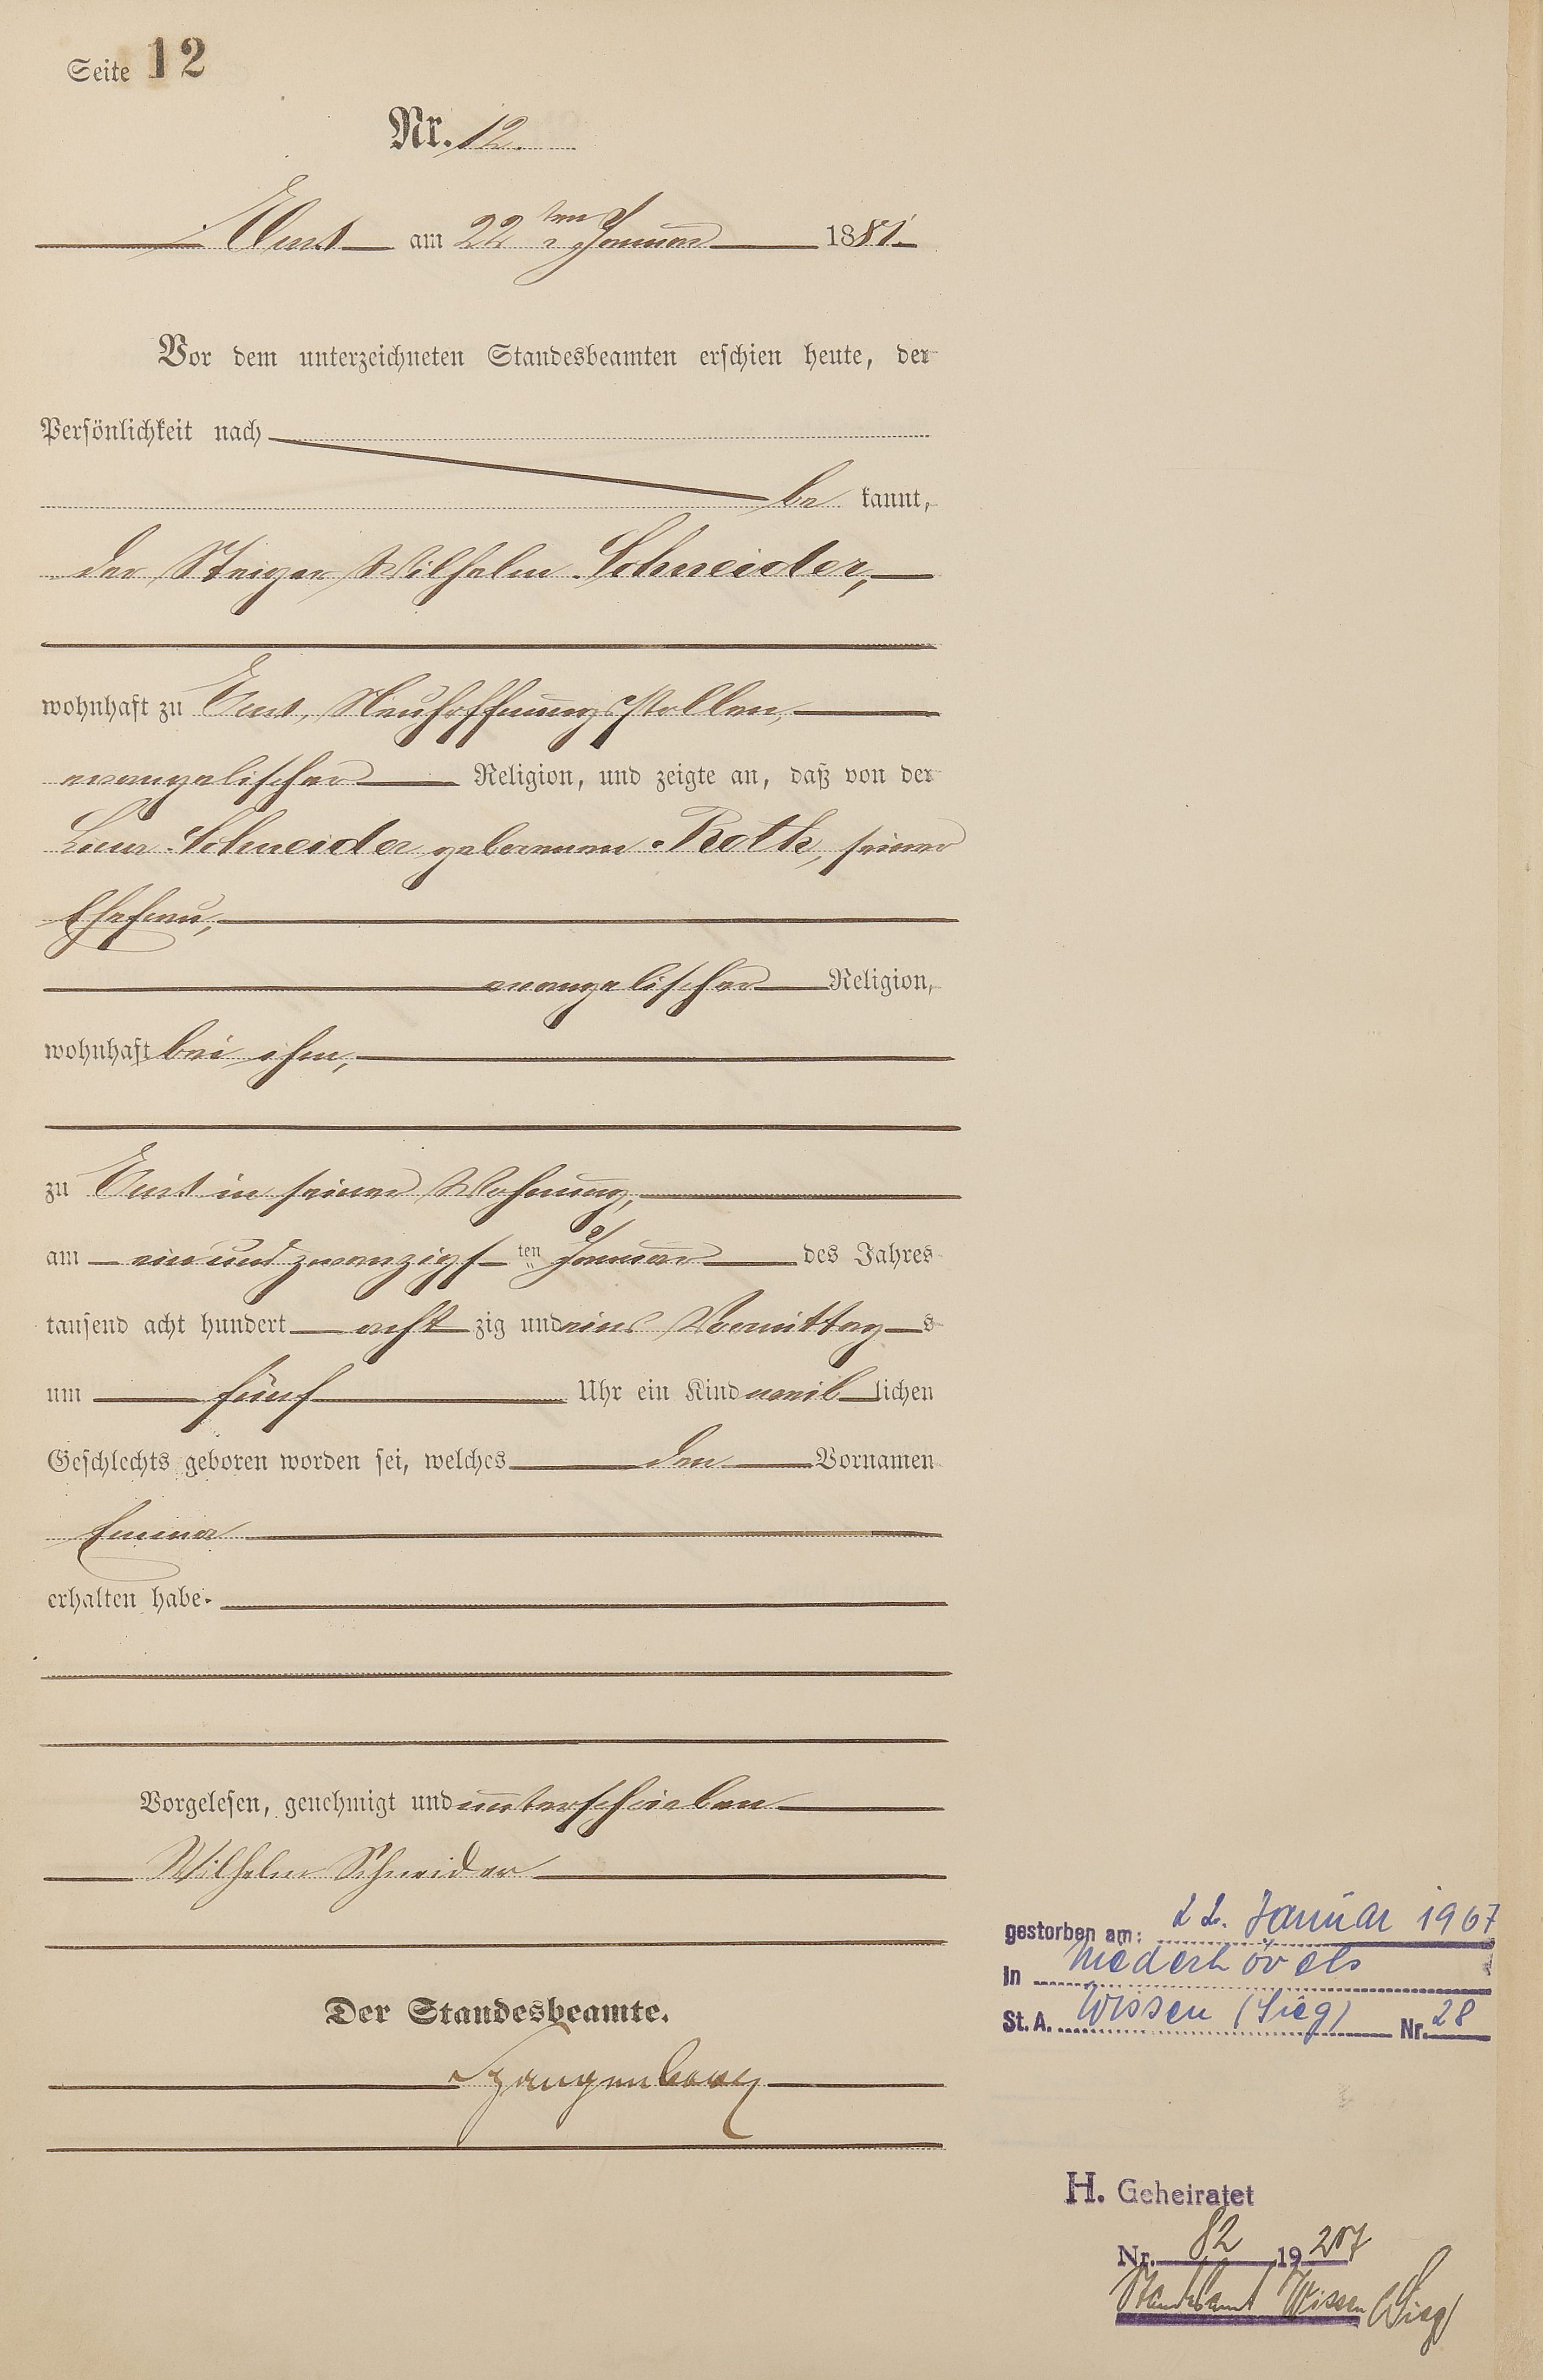 Seite 12
Nr. 12.
Ems am 22ten Januar 1881.
Vor dem unterzeichneten Standesbeamten erschien heute, der
Persönlichkeit nach
be kannt,
der Steiger Wilhelm Schneider,
wohnhaft zu Ems, Neuhoffnungsstollen,
evangelischer Religion, und zeigte an, daß von der
Schneider geborenen Roth, seiner
Ehefrau,
evangelischer Religion,
wohnhaft bei ihm,
zu Ems in seiner Wohnung,
am ein und zwanzigsten Januar des Jahres
tausend acht hundert acht zig und eins Vormittags
um fünf Uhr ein Kind weiblichen
Geschlechts geboren worden sei, welches den Vornamen
Emma
erhalten habe.
Vorgelesen, genehmigt und unterschrieben
Wilhelm Schneider
Der Standesbeamte.
Spangenberg
gestorben am: 22. Januar 1967
in Niederhövels
St. A. Wissen (Sieg) Nr. 28
H. Geheiratet
Nr. 82 19
Standesamt Wissen (Sieg)